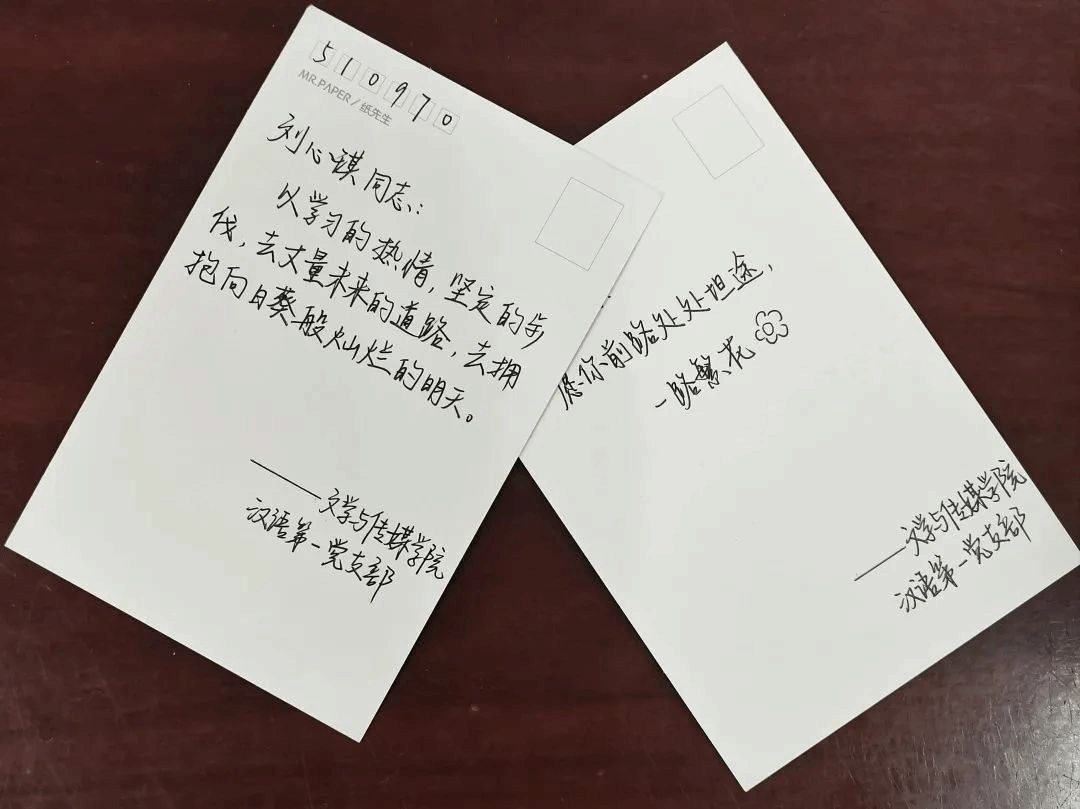 510970
MR.PAPER/纸先生
刘心琪同志:
以学习的热情,坚定的步
伐,去丈量未来的道路,去拥
抱向日葵般灿烂的明天。
——文学与传媒学院
汉语第一党支部
愿你前路处处坦途,
一路繁花
——文学与传媒学院
汉语第一党支部